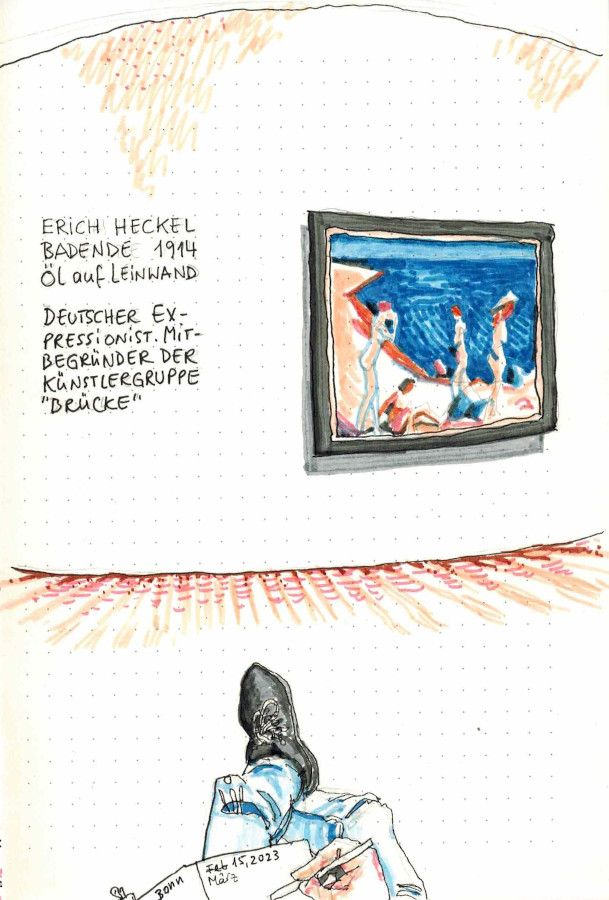 ERICH HECKEL
BADENDE 1914
Öl auf LEINWAND
DEUTSCHER EX-
PRESSIONIST. MIT-
BEGRÜNDER DER
KÜNSTLERGRUPPE
"BRÜCKE"
Feb 15, 2023
März
Bonn